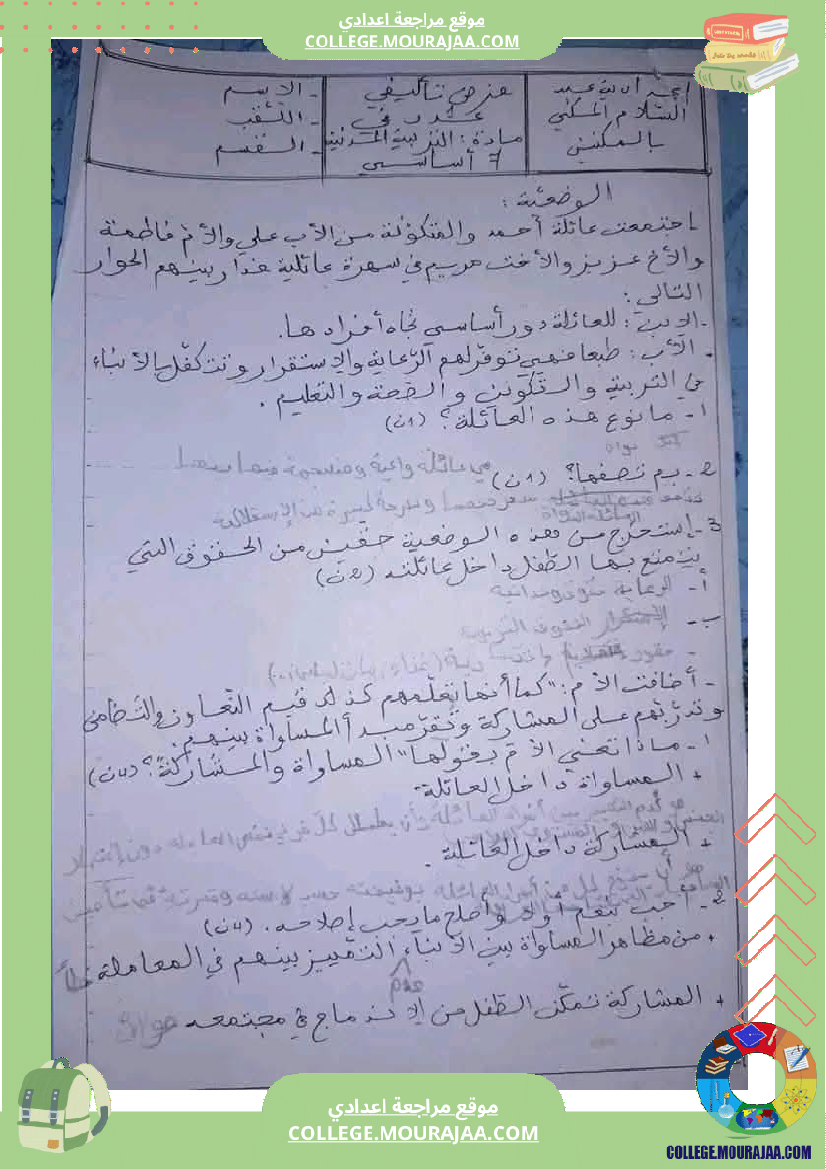 موقع مراجعة اعدادي
COLLEGE.MOURAJAA.COM
السلام المكني
بالمكنين
فرض تأليفي
عدد في
مادة: التربية المدنية
7 أساسي
- الاسم
- اللقب
- القسم
الوضعية:
اجتمعت عائلة أحمد والمتكونة من الأب علي والأم فاطمة
والأخ عزيز والأخت مريم في سهرة عائلية فدار بينهم الحوار
التالي:
- الابن: للعائلة دور أساسي تجاه أفرادها.
- الأب: طبعا فهي توفر لهم الرعاية والاستقرار وتتكفل بالأبناء
في التربية والتكوين والصحة والتعليم.
1- ما نوع هذه العائلة؟ (1ن)
2- بم تصفها؟ (1ن) هي عائلة واعية ومنسجمة فيما بينها
3- إستخرج من هذه الوضعية حقين من الحقوق التي
يتمتع بها الطفل داخل عائلته (2ن)
أ- الرعاية حقوق وجدانية
ب- الحقوق التربوية
- أضافت الأم: "كما أنها تعلمهم كذلك قيم التعاون والتضامن
وتدربهم على المشاركة وتقر مبدأ المساواة بينهم.
1- ماذا تعني الأم بقولها "المساواة والمشاركة"؟ (4ن)
+ المساواة داخل العائلة:
هو عدم التمييز بين أفراد العائلة
+ المشاركة داخل العائلة.
2- أجب بنعم أو لا وأصلح ما يجب إصلاحه. (4ن)
+ من مظاهر المساواة بين الأبناء التمييز بينهم في المعاملة خطأ
عدم
+ المشاركة تمكن الطفل من الاندماج في مجتمعه صواب
موقع مراجعة اعدادي
COLLEGE.MOURAJAA.COM
COLLEGE.MOURAJAA.COM